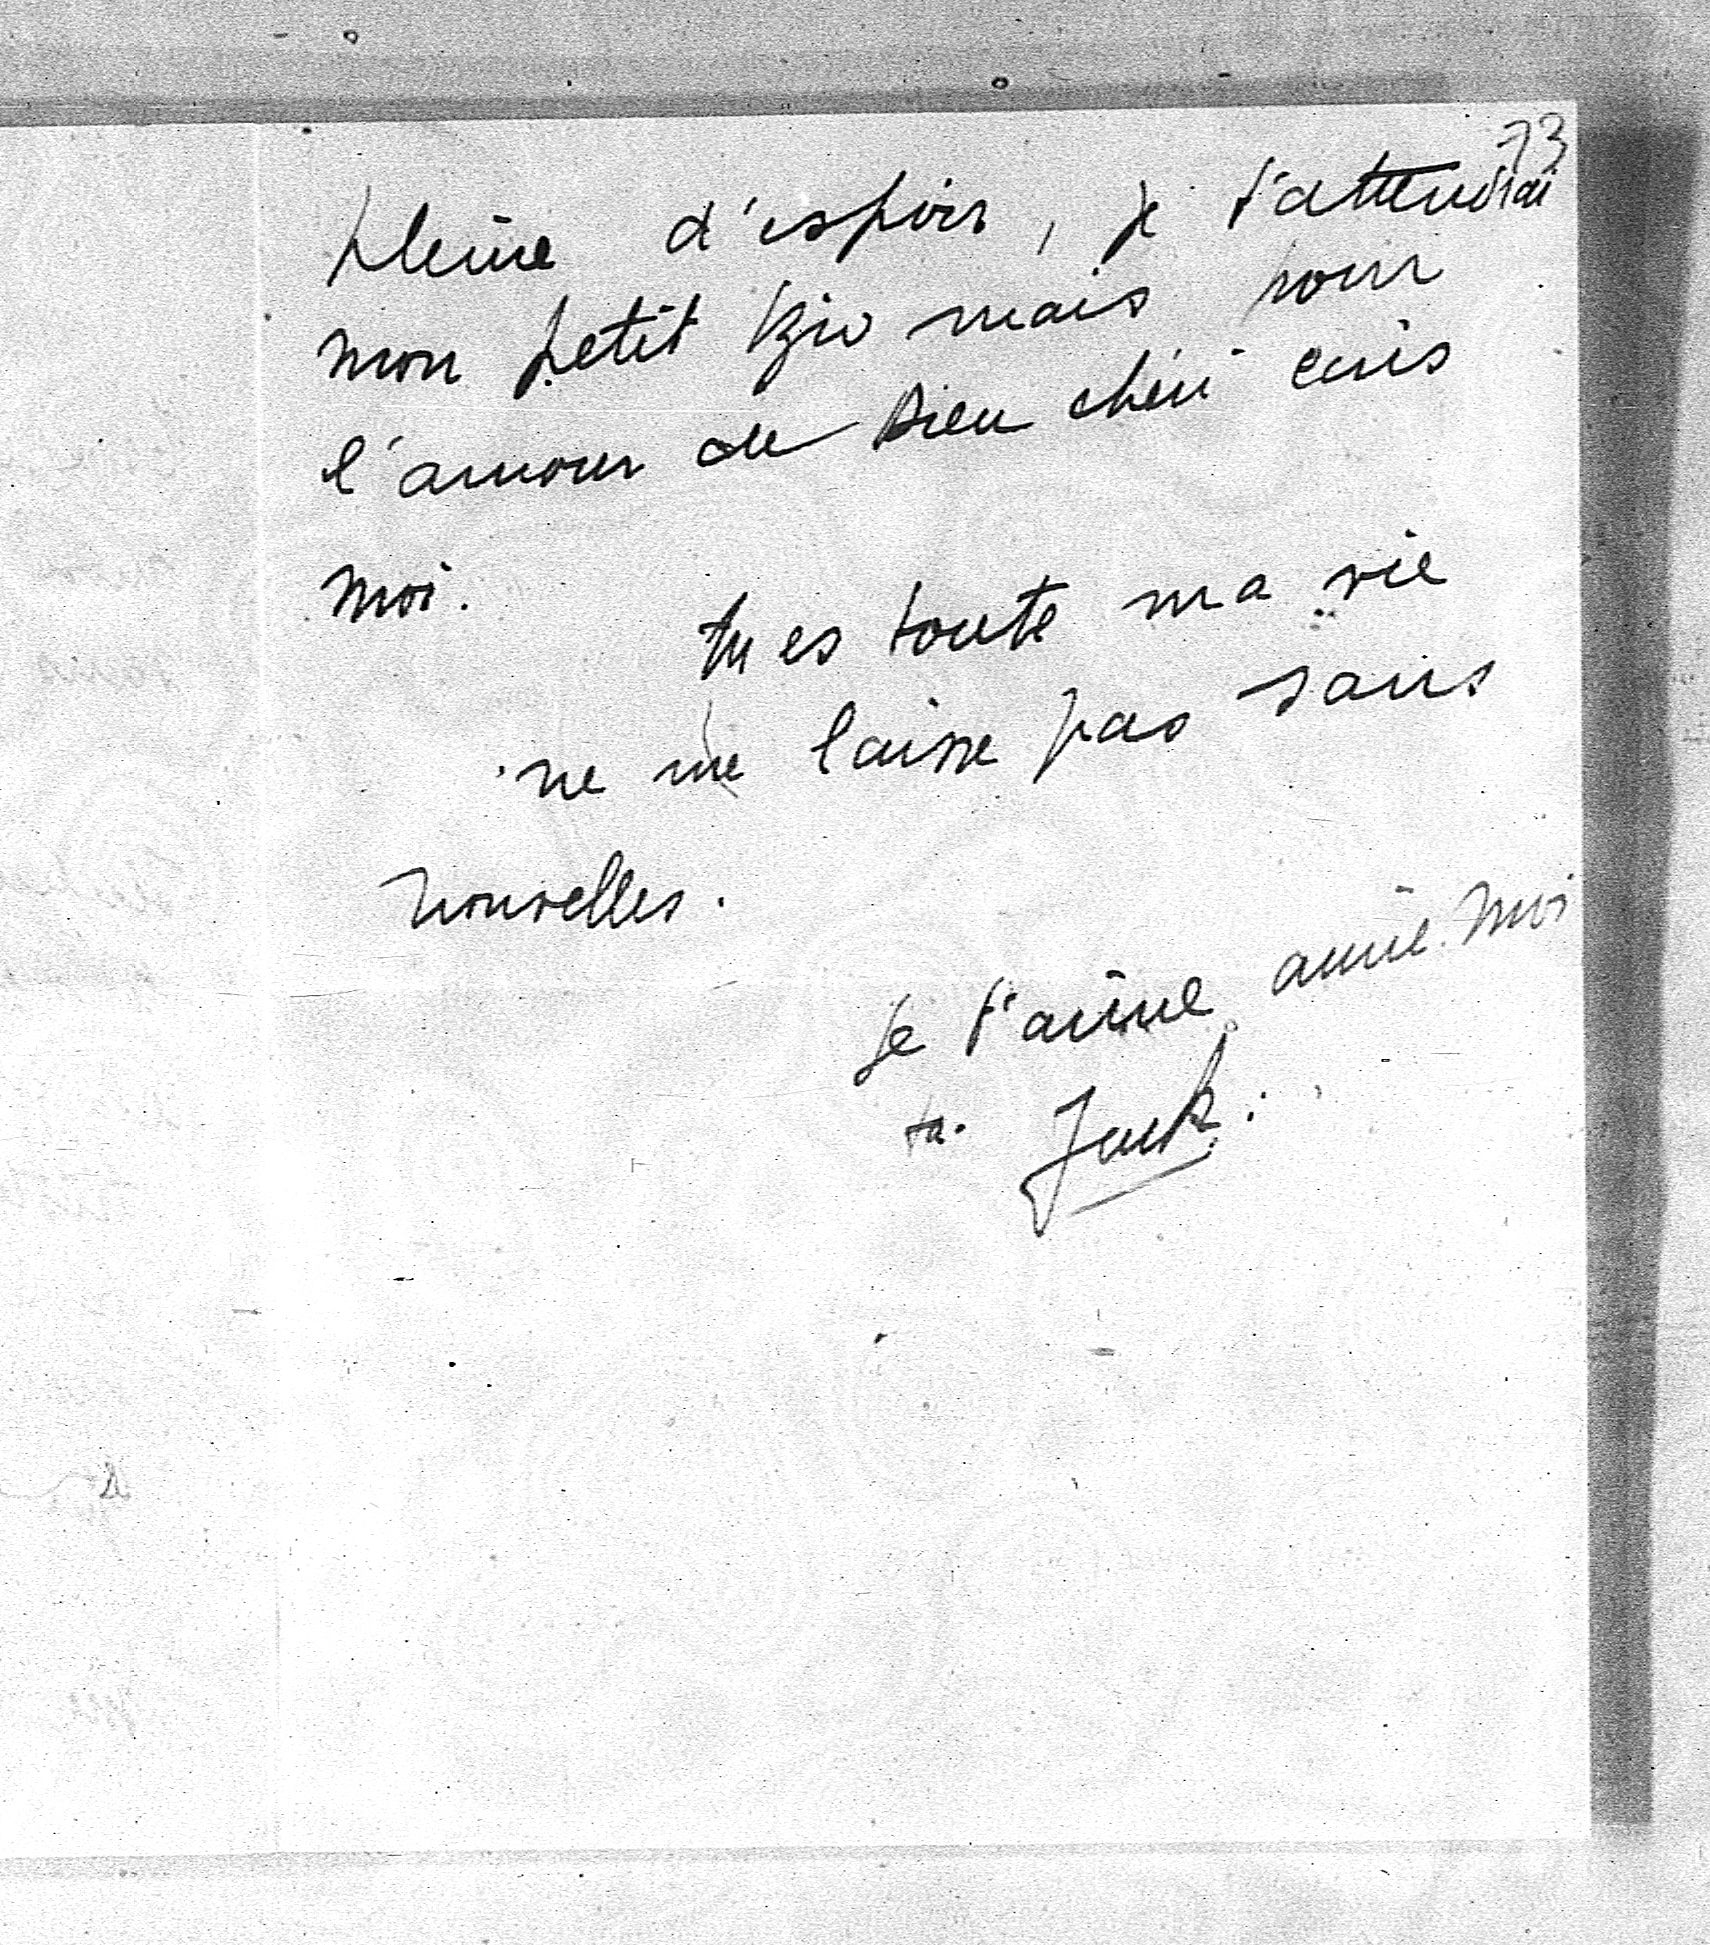 73
pleine d'espoir, je t'attendrai
mon petit mais pour
l'amour de Dieu chéri écris
moi.
tu es toute ma vie
ne me laisse pas sans
nouvelles.
je t'aime aime-moi
ta Jack